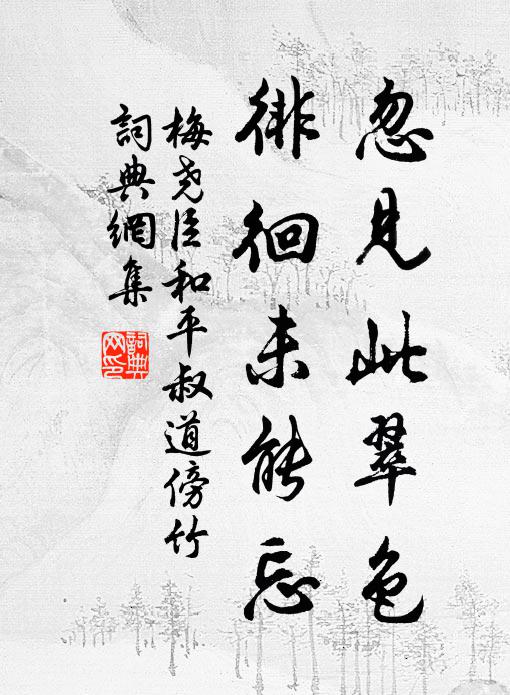 忽見此翠色
徘徊未能忘
梅堯臣和平叔道傍竹
詞典網集
詞典網印